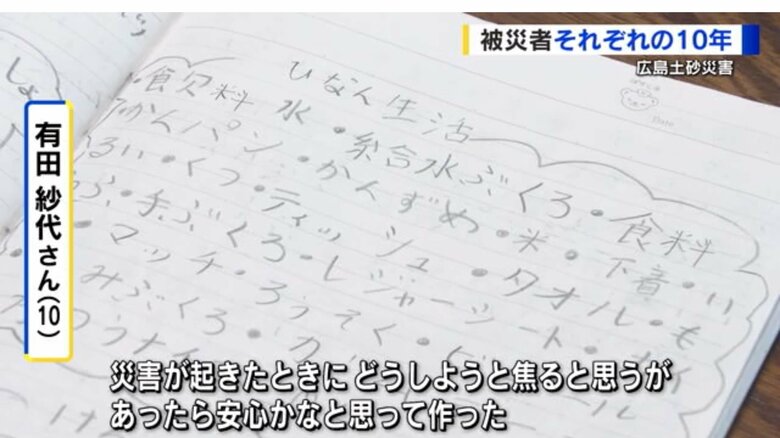 被災者それぞれの10年
広島土砂災害
有田 紗代さん(10)
ひなん生活
・飲料水・給水ぶくろ・食料
かんパン・かんずめ・米・下着・い
るい・くつ・ティッシュ・タオル・も
ふ・手ぶくろ・レジャーシート・
マッチ・ろうそく・
みぶくろ・
災害が起きたときに どうしようと焦ると思うが
あったら安心かなと思って作った